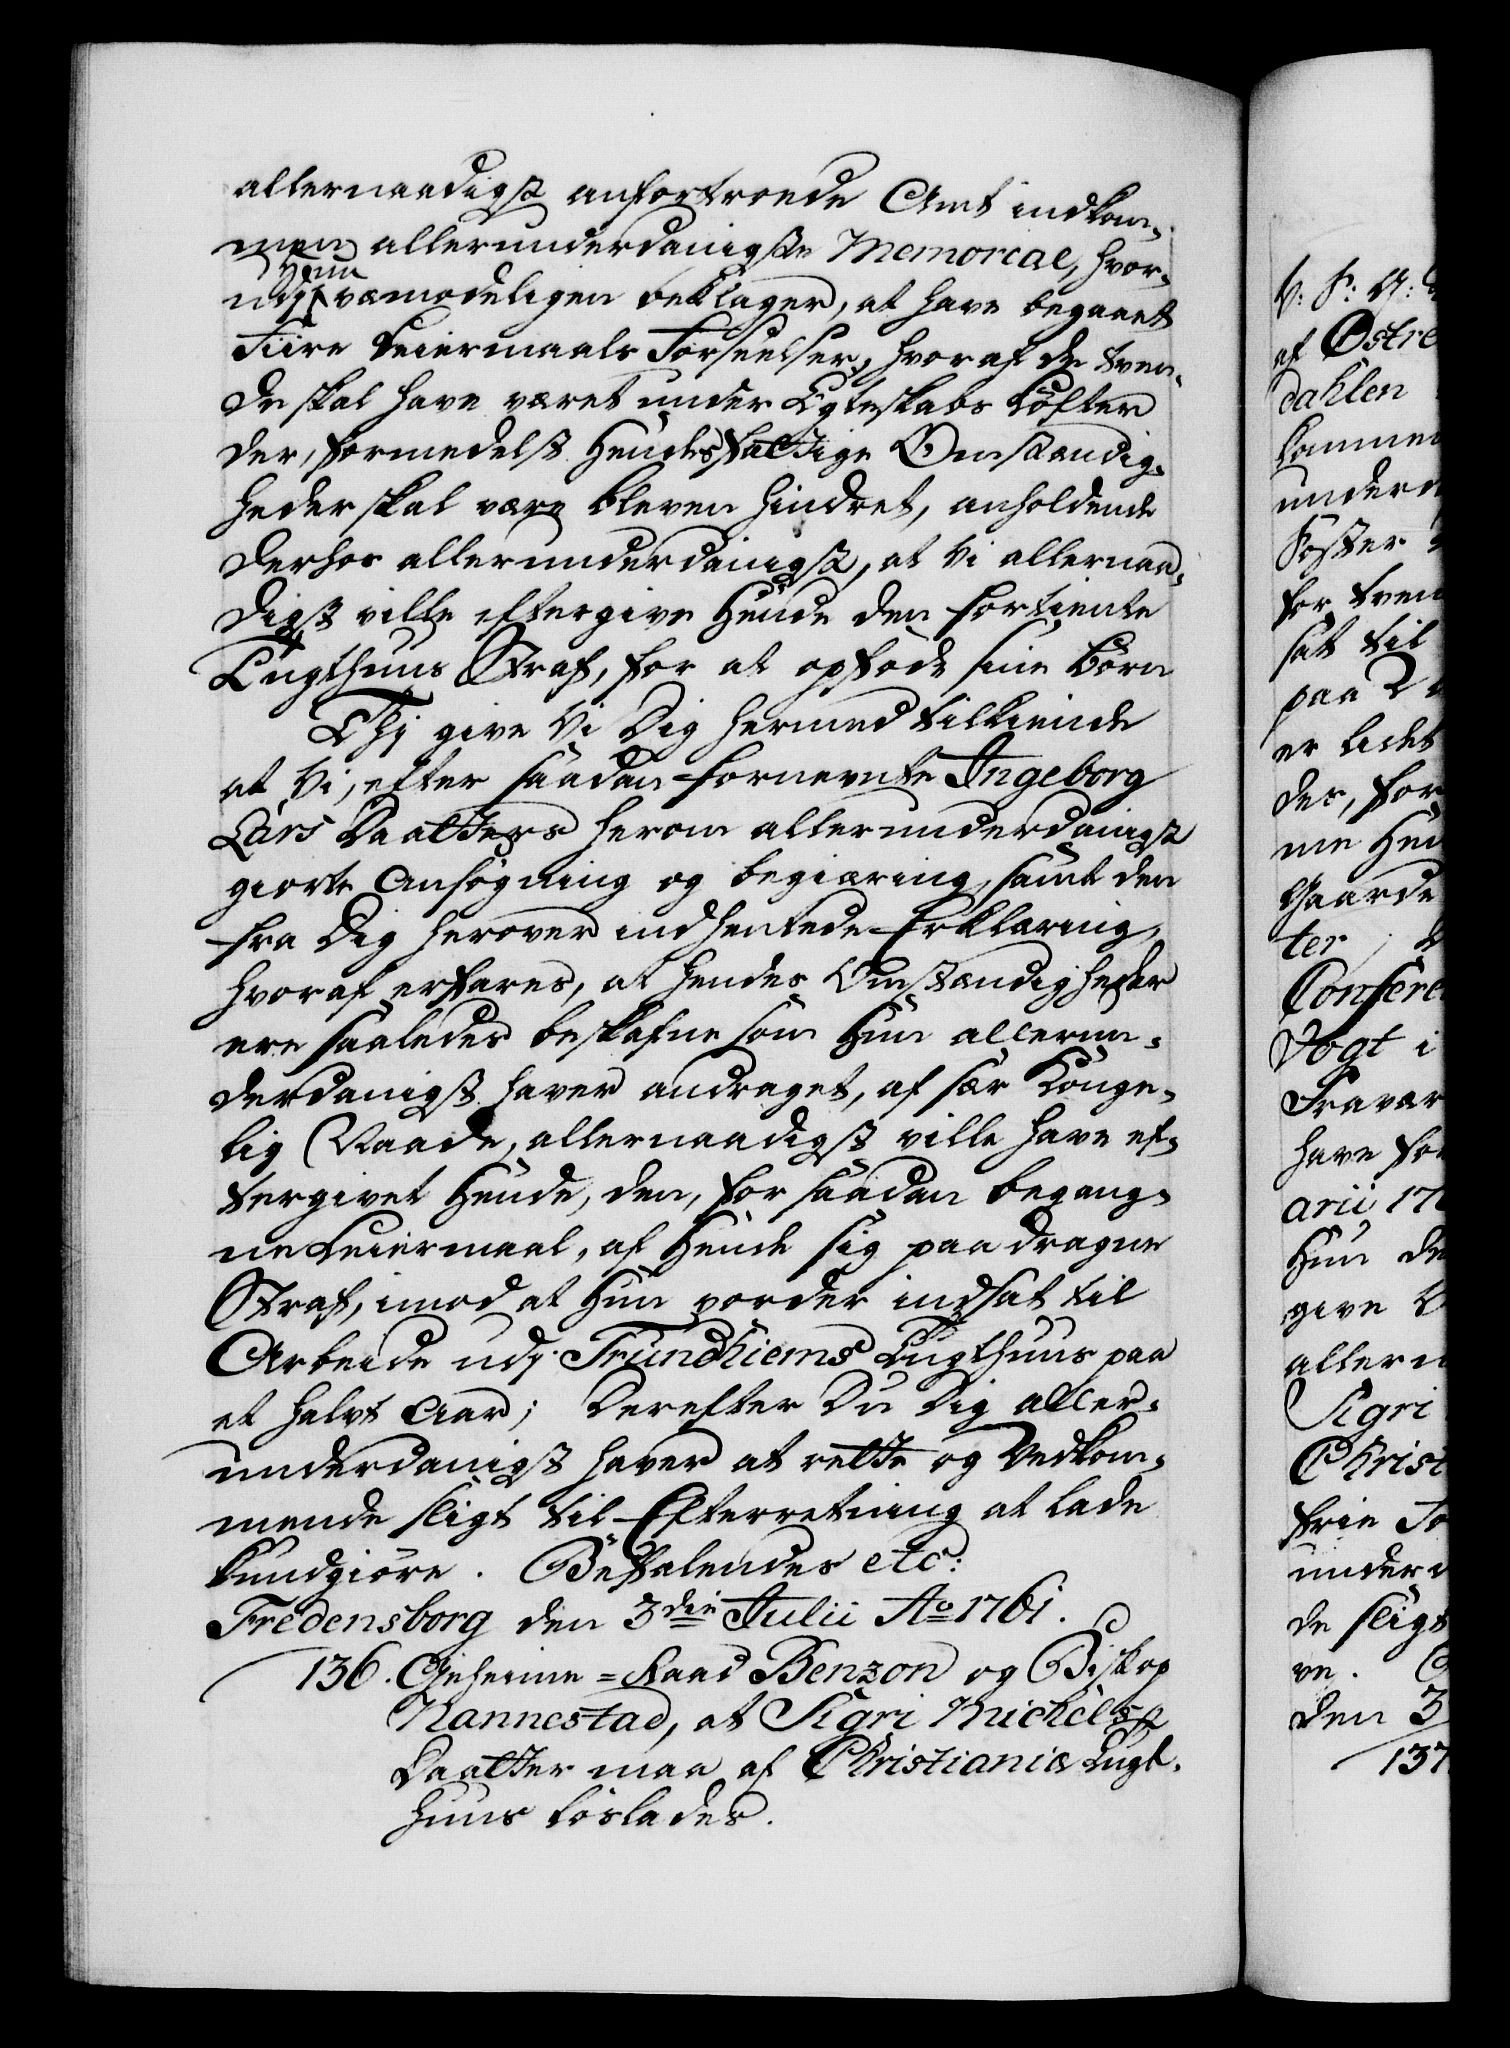 allernaadigst anfortroede Amt indkom-
men allerunderdanigste Memorial, hvor-
Hun
udj vemodeligen beklager, at have begaaet
Fiire Leiermaals Forseelser, hvoraf de tven-
de skal have været under Egteskabs Løfter
der, formedelst Hendes fattige Omstændig-
heder skal være bleven hindret, anholdende
derhos allerunderdanigst, at Vi allernaa-
digst ville eftergive Hende den fortiente
Tugthuus Straf, for at opføde sine Børn
Thj give Vi Dig hermed tilkiende
at Vi, efter saadan fornevnte Ingeborg
Lars Daatters herom allerunderdanigst
giorte Ansøgning og begiæring, samt den
fra Dig herover indhentede Erklæring,
hvoraf erfares, at Hendes Omstændigheder
ere saaledes beskafne som Hun allerun-
derdanigst haver andraget, af sær Konge-
lig Naade, allernaadigst ville have ef-
tergivet Hende, den, for saadan begang-
ne Leiermaal, af Hende sig paadragne
Straf, imod at Hun vorder indsat til
Arbeide udj Trundhiems Tugthuus paa
et halvt Aar; Derefter Du Dig aller-
underdanigst haver at rette og Vedkom-
mende sligt til Efterretning at lade
kundgiøre. Befalendes etc:
Fredensborg den 3die Julii Ao 1761.
136. Geheime-Raad Benzon og Biskop
Nannestad, at Sigri Michels
Daatter maa af Christianiæ Tugt-
huus løslades.
V: S: G: 
af Østre
dahlen
kammer
under
Foster
for tven
sat til
paa 2
er ladet
des, for
me Hen
Gaarde
ter
Confere
Vogt i
Fravær
have for
arii 17
Hun de
give V
allern
Sigri
Christ
frie
under
de sligt
ve.
den 3
137